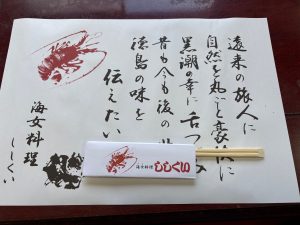 遠来の旅人に
自然を丸ごと豪快に
黒潮の幸に舌つ
昔も今も後の世
徳島の味を
伝えたい
海女料理
ししくい
海女料理
ししくい